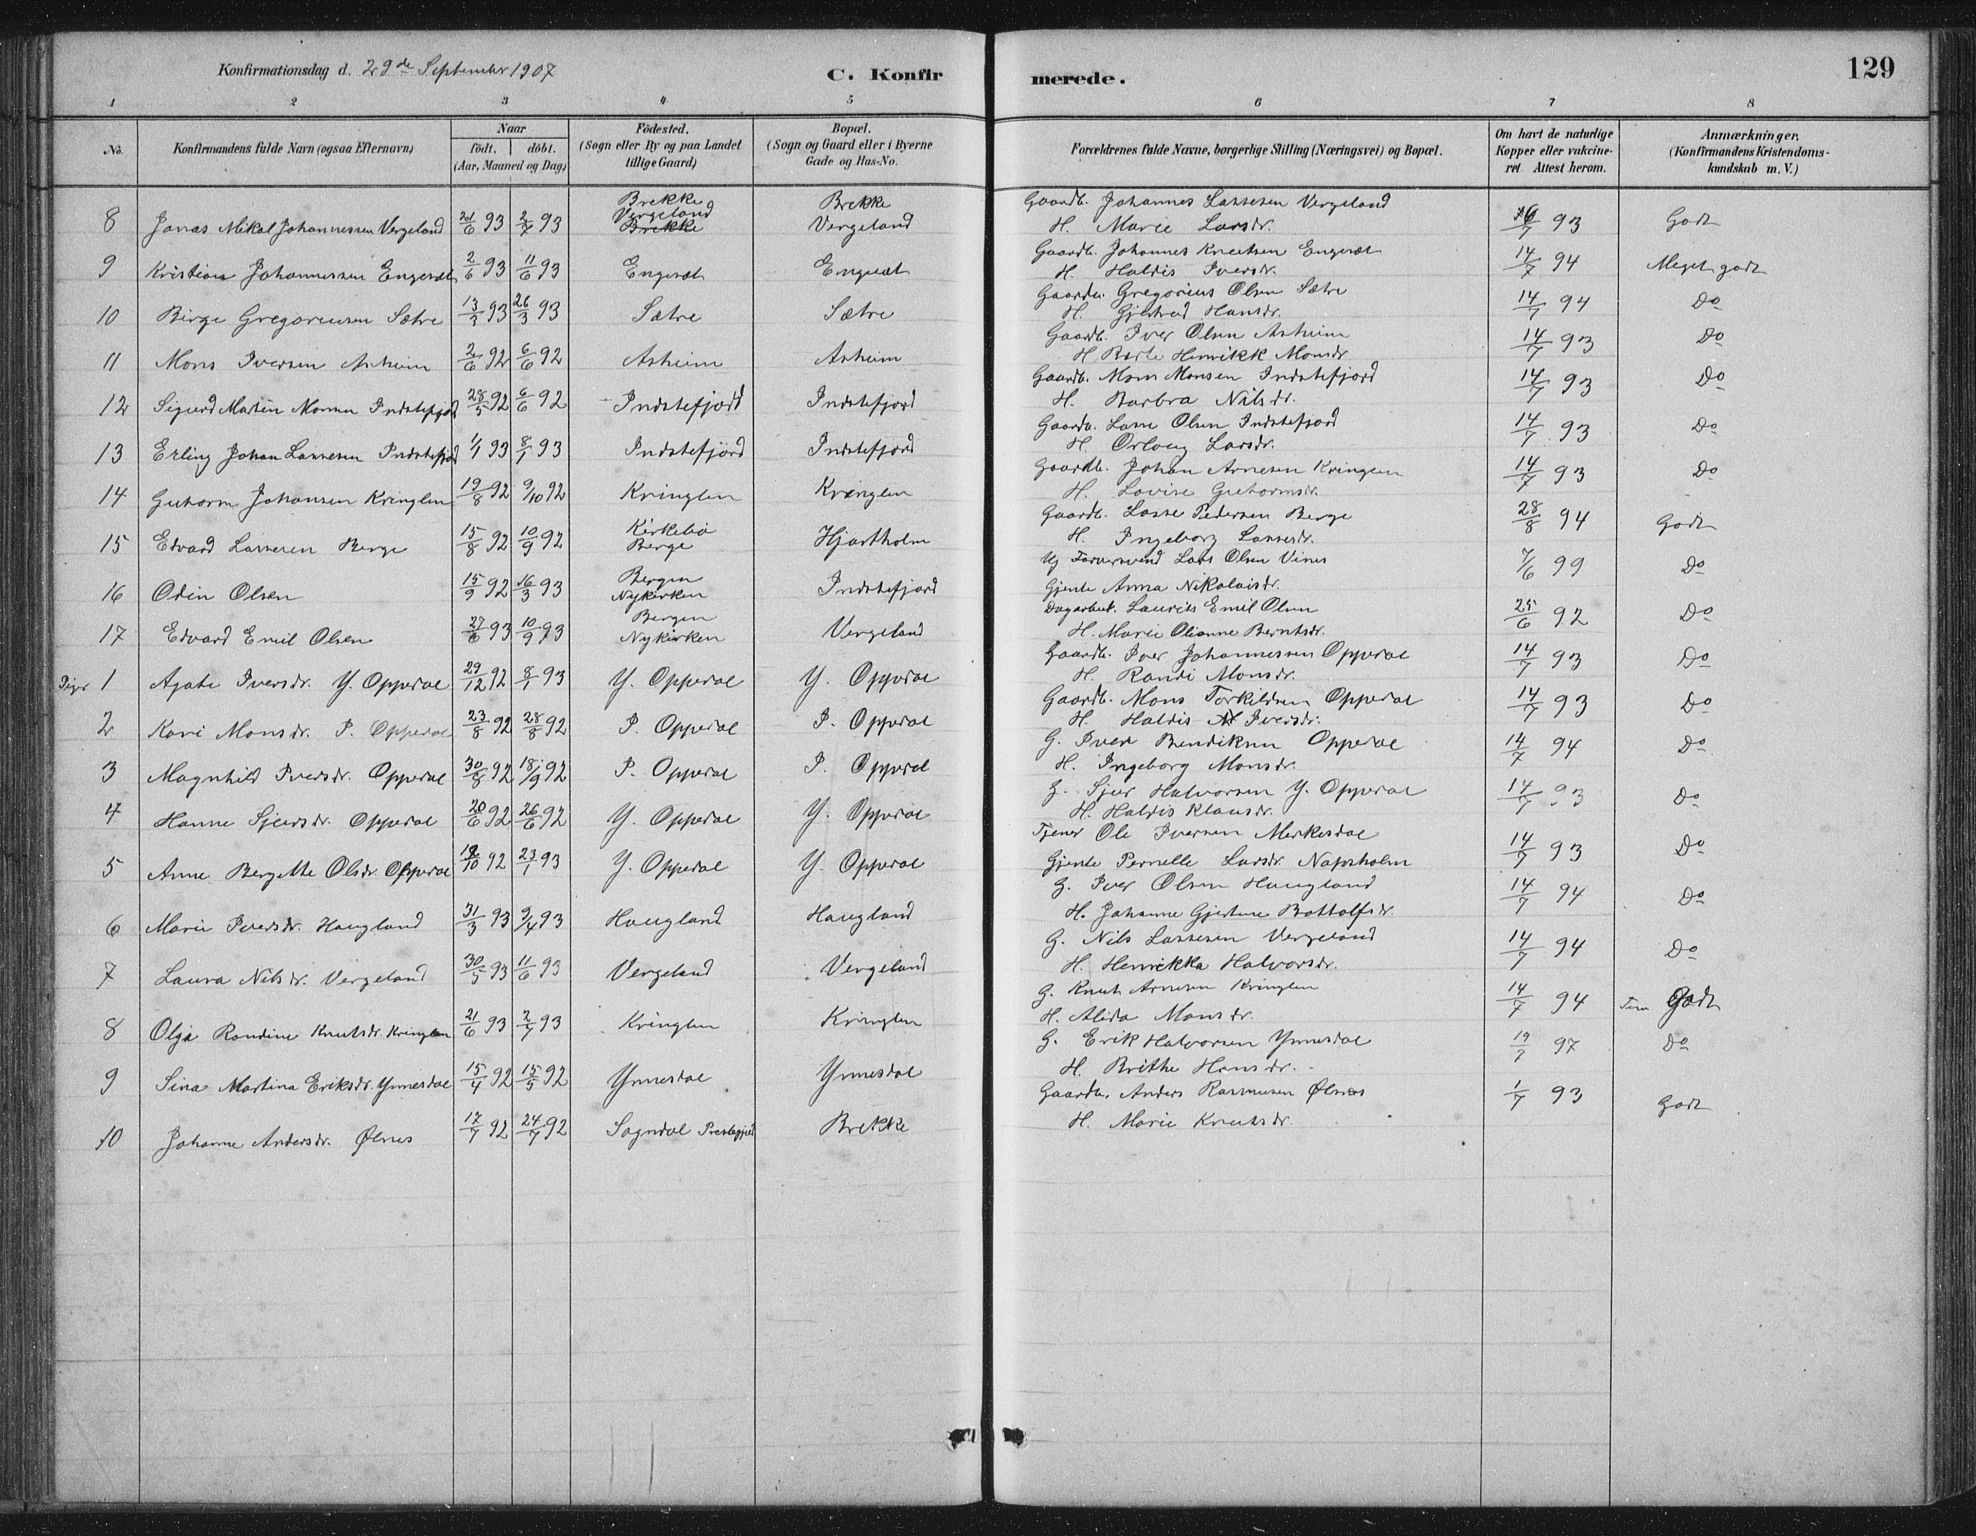 Konfirmationsdag d. 29de September 1907 C. Konfirmerede. 129
1 2 3 4 5 6 7 8
No. Konfirmandens fulde Navn (ogsaa Efternavn) Naar födt. döbt. (Aar, Maaned og Dag) Födested. (Sogn eller By og paa Landet tillige Gaard) Bopæl. (Sogn og Gaard eller i Byerne Gade og Hus-No. Forældrenes fulde Navne, borgerlige Stilling (Næringsvei) og Bopæl. Om havt de naturlige Kopper eller vakcineret. Attest herom. Anmærkninger. (Konfirmandens Kristendomskundskab m. V.)
8 Jonas Mikal Johannessen Vergeland 6 93 2/7 93 Brekke Vergeland Brekke Vergeland Gaardb. Johannes Lassesen Vergeland H. Marie Larsdr. 7 93 Godt
9 Kristian Johannessen Engesæt 2/6 93 11/6 93 Engesæt Engesæt Gaardb. Johannes Knutsen Engesæt H. Haldis Iversdr. 14/7 94 Meget godt
10 Birge Gregoriusen Sætre 13/3 93 26/3 93 Sætre Sætre Gaardb. Gregorius Olsen Sætre H. Gjertrud Hansdr. 14/7 94 Do
11 Mons Iversen Asheim 2/6 92 6/6 92 Asheim Asheim Gaardb. Iver Olsen Asheim H. Henrikk Monsdr. 14/7 93 Do
12 Sigurd Martin Monsen Indstefjord 28/5 92 6/6 92 Indstefjord Indstefjord Gaardb. Mons Monsen Indstefjord H. Barbra Nilsdr. 14/7 93 Do
13 Erling Johan Lassesen Indstefjord 1/1 93 8/1 93 Indstefjord Indstefjord Gaardb. Lasse Olsen Indstefjord H. Orloug Larsdr. 14/7 93 Do
14 Guttorm Johansen Kringlen 19/8 92 9/10 92 Kringlen Kringlen Gaardb. Johan Arnesen Kringlen H. Lovise Guttormsdr. 14/7 93 Do
15 Edvard Lassesen Berge 15/8 92 10/9 92 Kirkebø Berge Hjartholm Gaardb. Lasse Pedersen Berge H. Ingeborg Lassesdr. 28/8 94 Godt
16 Odin Olsen 15/9 92 16/3 93 Bergen Nykirken Indstefjord Ug Farversvend Lars Olsen Vines Gjente Anna Nikolaisdr. 7/6 99 Do
17 Edvard Emil Olsen 27/6 93 10/9 93 Bergen Nykirken Vergeland Dagarbeid. Laurits Emil Olsen H. Marie Olianne Berntsdr. 25/6 92 Do
Piger 1 Agate Iversdr. Y. Opperdal 29/12 92 8/1 93 Y. Opperdal Y. Opperdal Gaardb. Iver Johannessen Opperdal H. Randi Monsdr. 14/7 93 Do
2 Kari Monsdr. I. Opperdal 23/8 92 28/8 92 I. Opperdal I. Opperdal Gaardb. Mons Torkildsen Opperdal H. Haldis Iversdr. 14/7 93 Do
3 Magnhild Iversdr. Opperdal 30/8 92 18/9 92 I. Opperdal I. Opperdal G. Iver Bendiksen Opperdal H. Ingeborg Monsdr. 14/7 94 Do
4 Hanne Sjursdr. Opperdal 20/6 92 26/6 92 Y. Opperdal Y. Opperdal G. Sjur Halvorsen Y. Opperdal H. Haldis Klausdr. 14/7 93 Do
5 Anne Bergitte Olsdr. Opperdal 10 92 23/1 93 Y. Opperdal Y. Opperdal Tjener Ole Iversen Merkesdal Gjente Pernelle Larsdr. Napsholm 14/7 93 Do
6 Marie Iversdr. Haugland 31/3 93 9/4 93 Haugland Haugland G. Iver Olsen Haugland H. Johanne Gjertine Bottolfsdr. 14/7 94 Do
7 Laura Nilsdr. Vergeland 30/5 93 11/6 93 Vergeland Vergeland G. Nils Lassesen Vergeland H. Henrikka Halvorsdr. 14/7 94 Do
8 Olga Rondine Knutsdr. Kringlen 21/6 93 2/7 93 Kringlen Kringlen G. Knut Arnesen Kringlen H. Alida Monsdr. 14/7 94 Godt
9 Sina Martina Eriksdr. Ynnesdal 15/4 92 15/5 92 Ynnesdal Ynnesdal G. Erik Halvorsen Ynnesdal H. Brithe Hansdr. 19/7 97 Do
10 Johanne Andersdr. Ølnes 17/7 92 24/7 92 Sogndal Prestegjeld Brekke Gaardb. Anders Rasmusen Ølnes H. Marie Knutsdr. 1/7 93 Godt